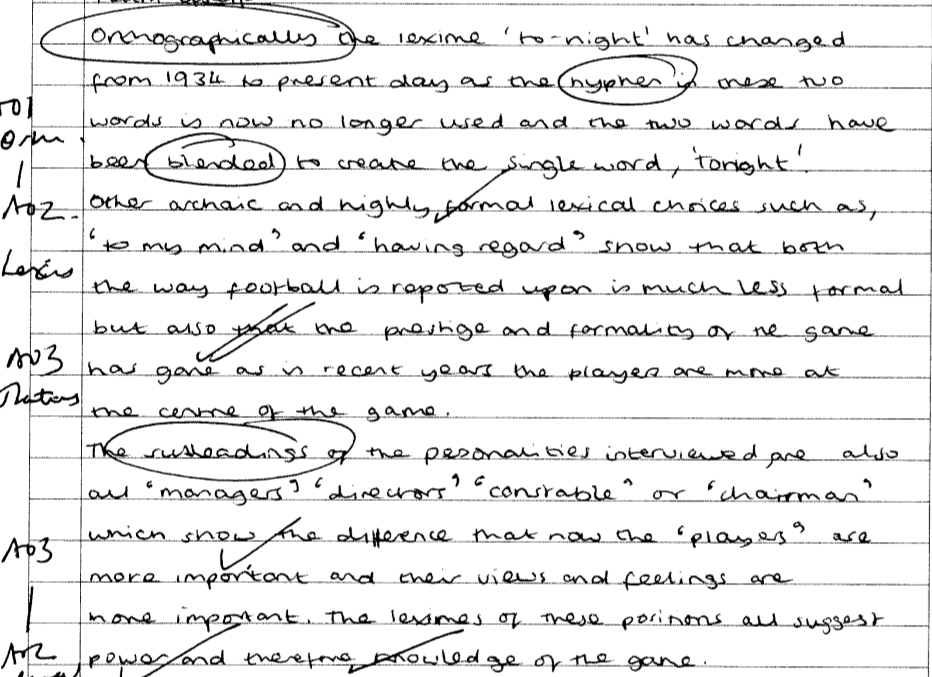 Orthographically the lexime 'to-night' has changed
from 1934 to present day as the hyphen in these two
words is now no longer used and the two words have
been blended to create the single word, 'tonight'.
Other archaic and highly formal lexical choices such as,
'to my mind' and 'having regard' show that both
the way football is reported upon is much less formal
but also that the prestige and formality of the game
has gone as in recent years the player are more at
the centre of the game.
The subheadings of the personalities interviewed are also
all 'managers' 'directors' 'constable' or 'chairman'
which show the difference that now the 'players' are
more important and their views and feelings are
more important. The leximes of these positions all suggest
power and therefore knowledge of the game.
AO1
AO2
Lexis
AO3
AO3
AO2